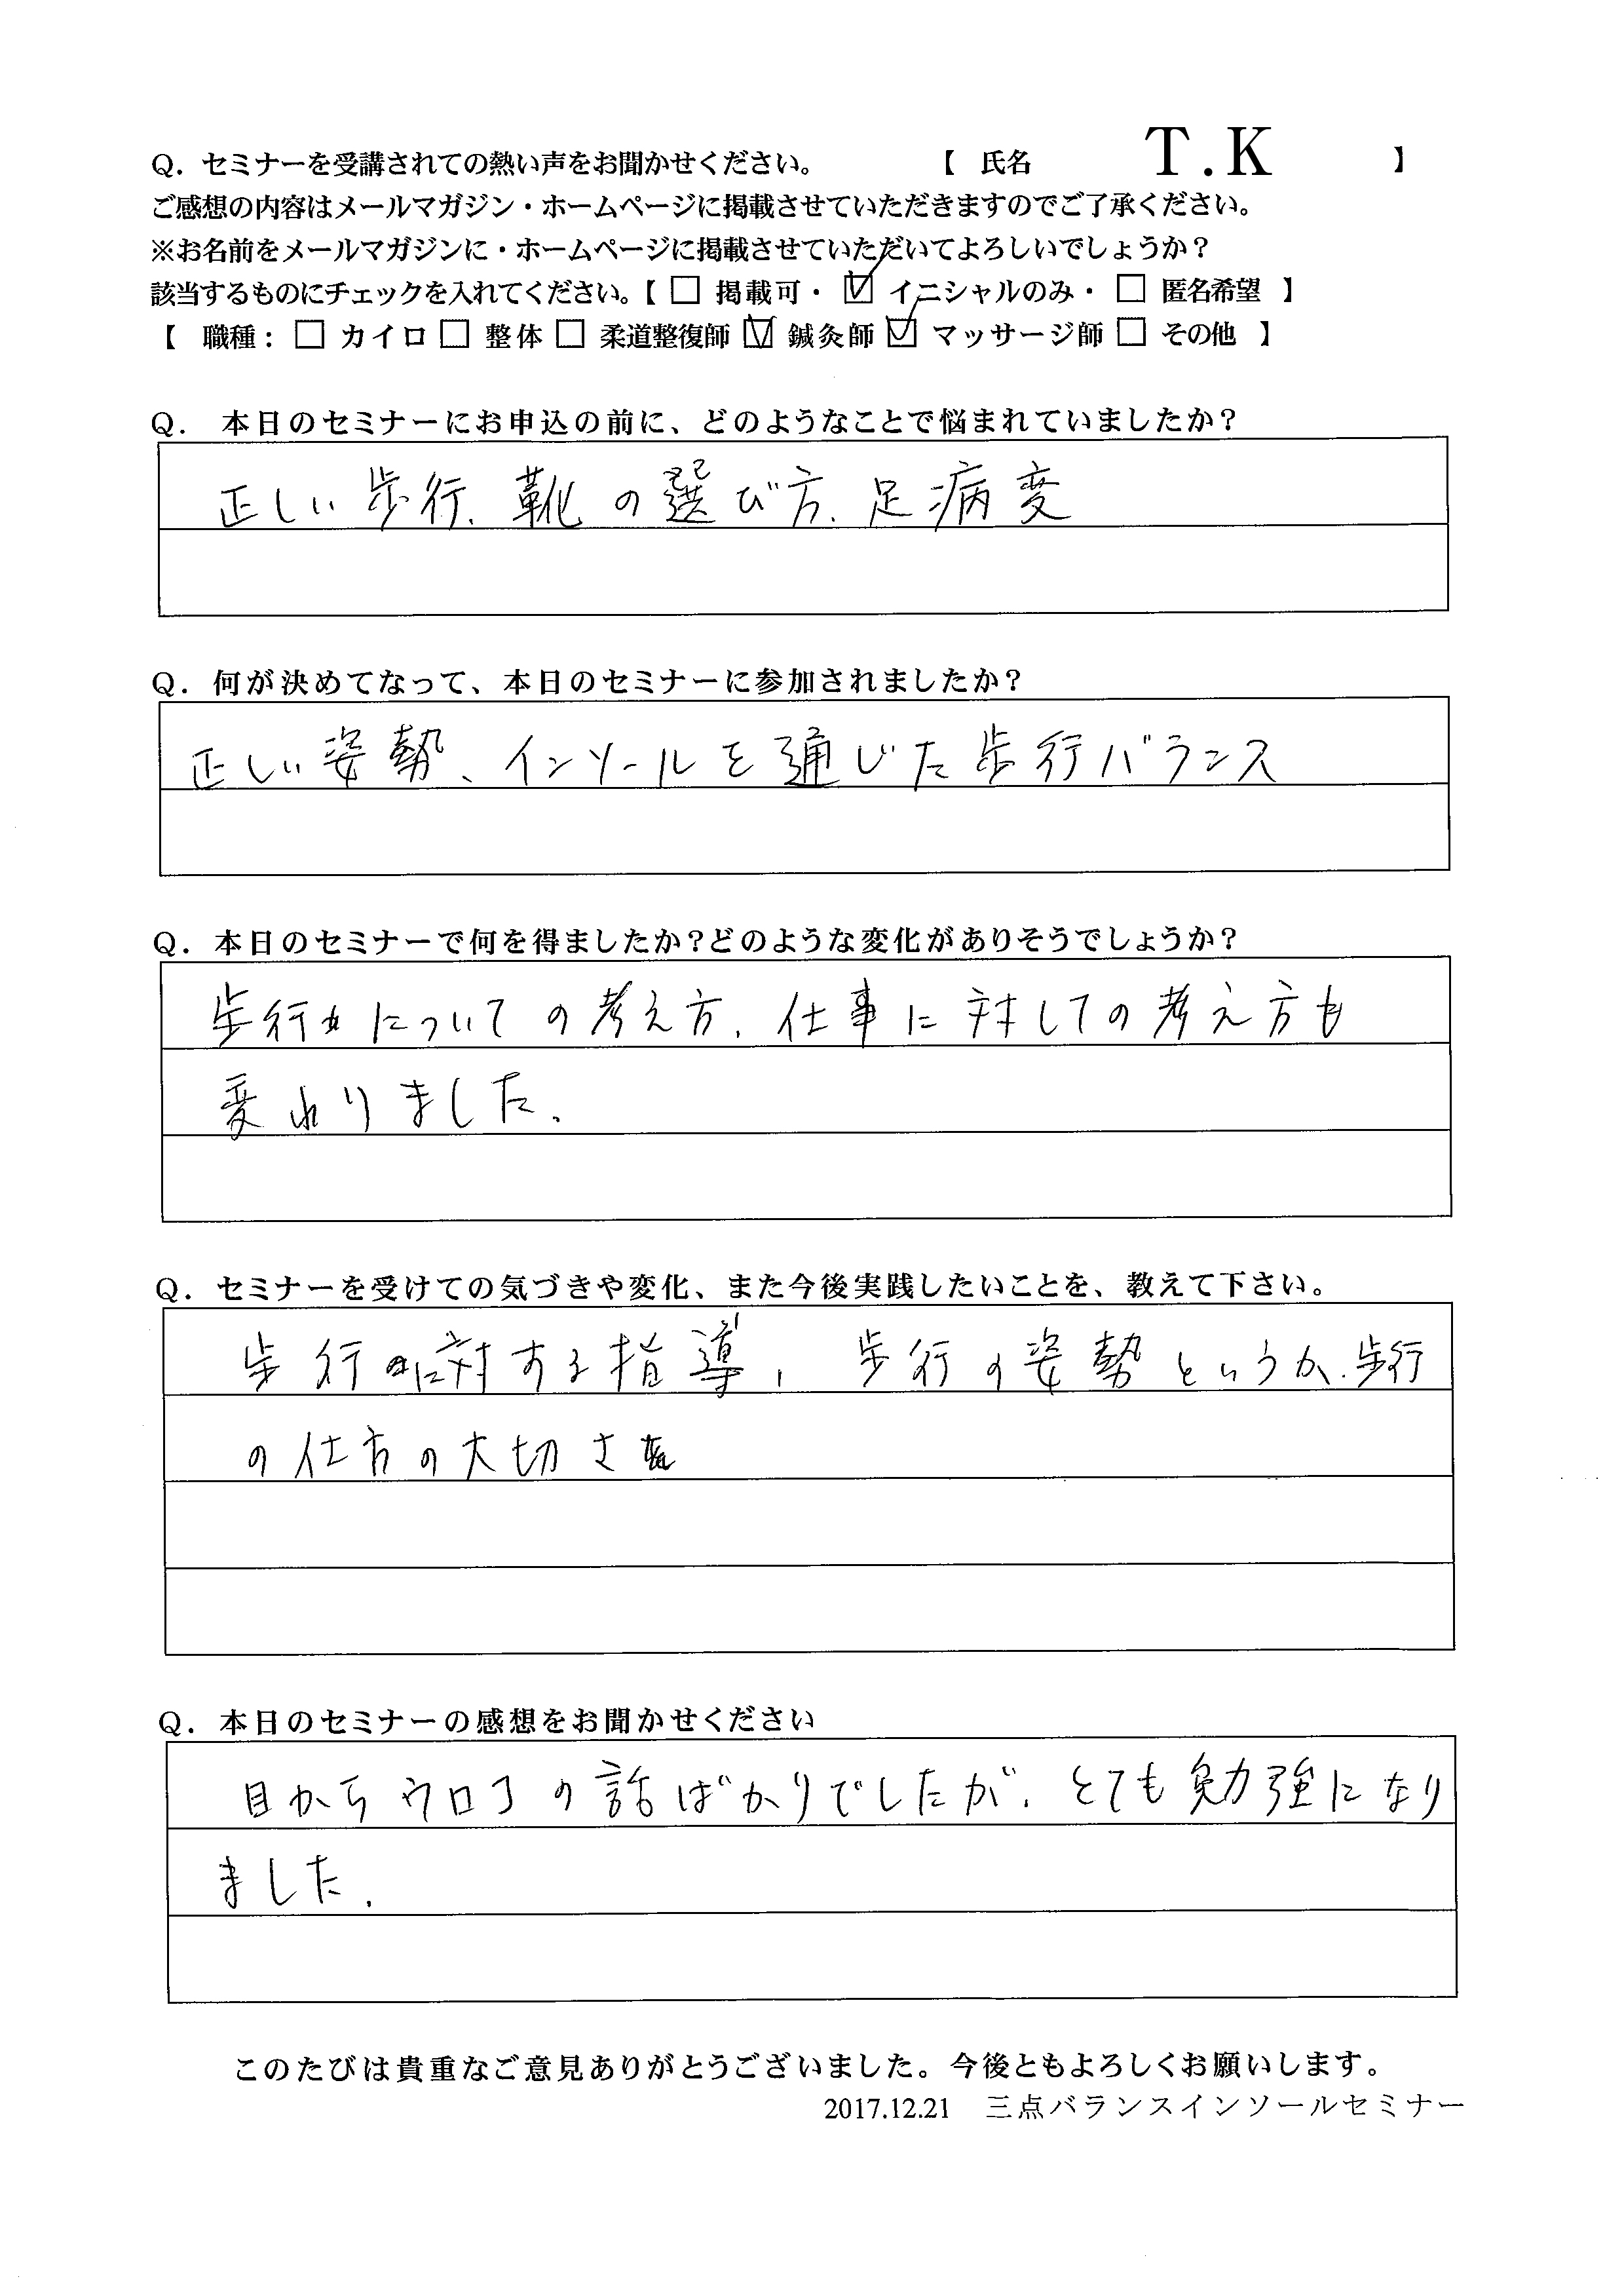 Q. セミナーを受講されての熱い声をお聞かせください。 【 氏名 T.K 】
ご感想の内容はメールマガジン・ホームページに掲載させていただきますのでご了承ください。
※お名前をメールマガジンに・ホームページに掲載させていただいてよろしいでしょうか？
該当するものにチェックを入れてください。【 □ 掲載可・ ☑ イニシャルのみ・ □ 匿名希望 】
【 職種： □ カイロ □ 整体 □ 柔道整復師 ☑ 鍼灸師 ☑ マッサージ師 □ その他 】
Q. 本日のセミナーにお申込の前に、どのようなことで悩まれていましたか？
正しい歩行、靴の選び方、足病変
Q. 何が決めてなって、本日のセミナーに参加されましたか？
正しい姿勢、インソールを通じた歩行バランス
Q. 本日のセミナーで何を得ましたか？どのような変化がありそうでしょうか？
歩行についての考え方、仕事に対しての考え方も
変わりました。
Q. セミナーを受けての気づきや変化、また今後実践したいことを、教えて下さい。
歩行に対する指導、歩行の姿勢というか、歩行
の仕方の大切さ
Q. 本日のセミナーの感想をお聞かせください
目からウロコの話ばかりでしたが、とても勉強になり
ました。
このたびは貴重なご意見ありがとうございました。今後ともよろしくお願いします。
2017.12.21 三点バランスインソールセミナー